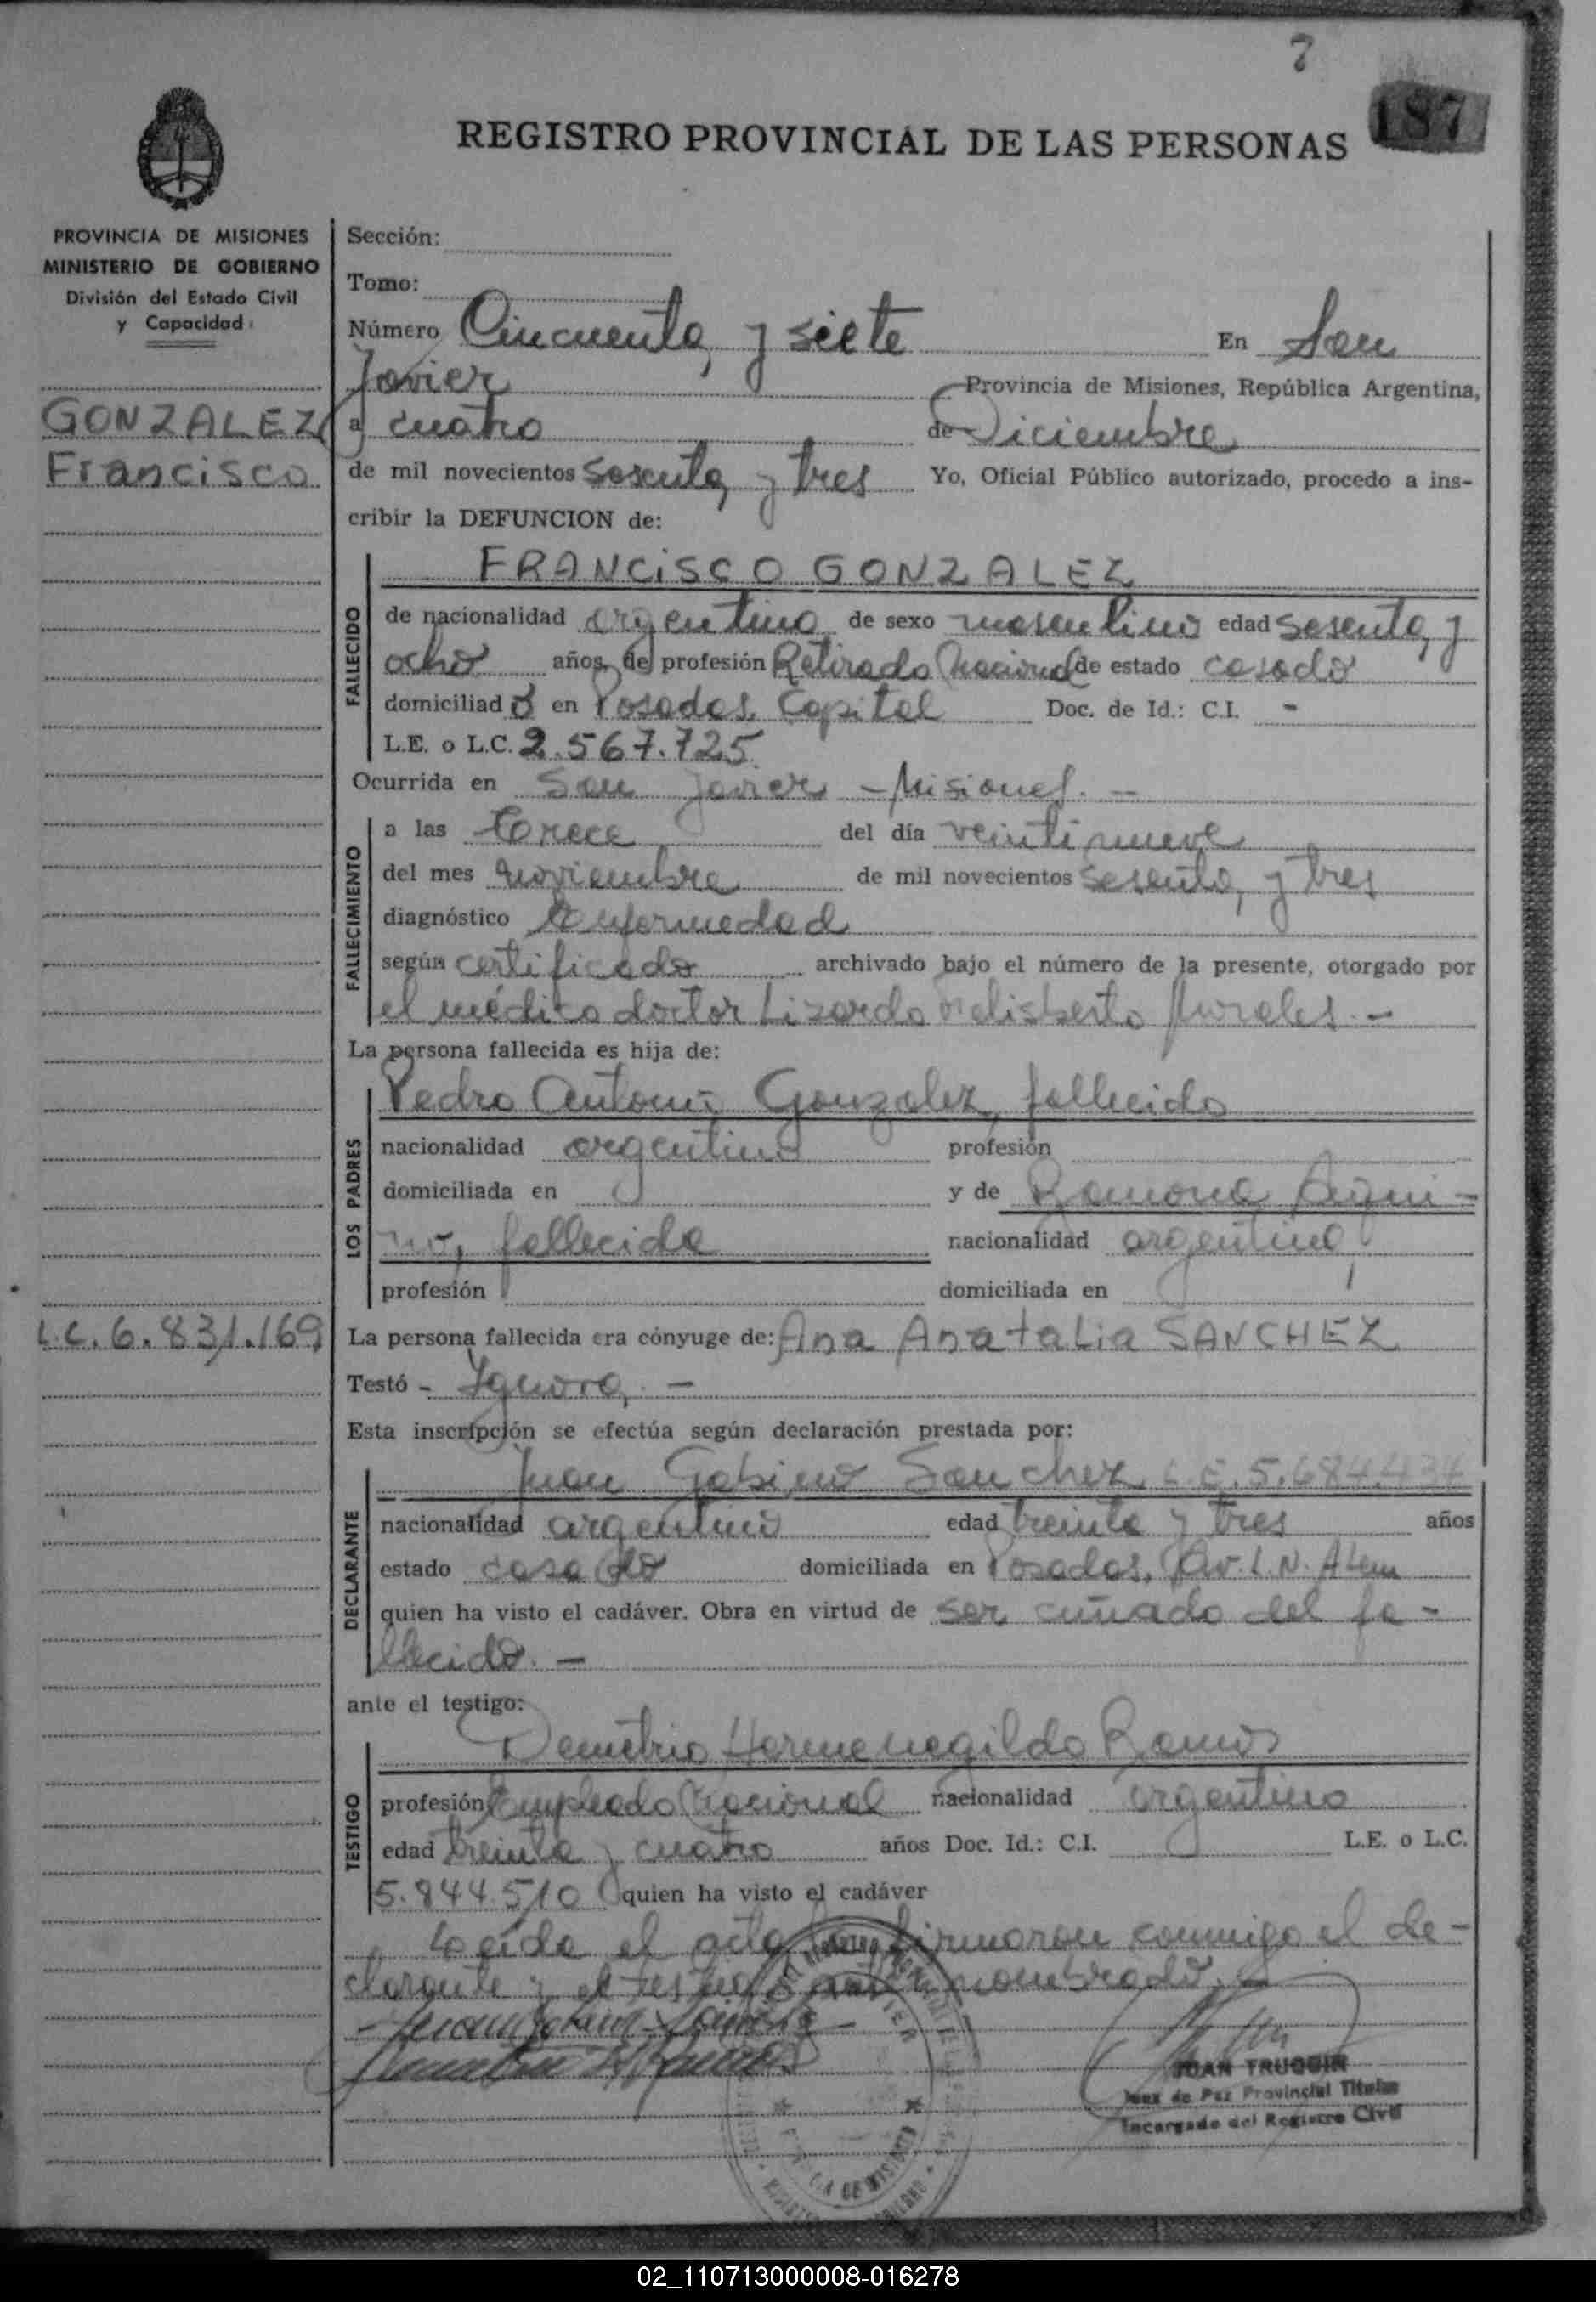 7
187
REGISTRO PROVINCIAL DE LAS PERSONAS
PROVINCIA DE MISIONES
MINISTERIO DE GOBIERNO
División del Estado Civil
y Capacidad
GONZALEZ
Francisco
Sección:
Tomo:
Número Cincuenta y siete En San
Javier Provincia de Misiones, República Argentina,
a cuatro de Diciembre
de mil novecientos sesenta y tres Yo, Oficial Público autorizado, procedo a ins-
cribir la DEFUNCION de:
FALLECIDO
FRANCISCO GONZALEZ
de nacionalidad argentino de sexo masculino edad sesenta y
ocho años, de profesión Retirado Nacional de estado casado
domiciliado en Posadas, Capital Doc. de Id.: C.I. -
L.E. o L.C. 2.567.725
Ocurrida en San Javier - Misiones. -
FALLECIMIENTO
a las trece del día veintinueve
del mes noviembre de mil novecientos sesenta y tres
diagnóstico Enfermedad
según certificado archivado bajo el número de la presente, otorgado por
el médico doctor Lizardo Melisberto Morales. -
La persona fallecida es hija de:
LOS PADRES
Pedro Antonio Gonzalez, fallecido
nacionalidad argentino profesión
domiciliada en y de Ramona Aqui-
no, fallecida nacionalidad argentina
profesión domiciliada en
L.C. 6.831.169
La persona fallecida era cónyuge de: Ana Anatalia SANCHEZ
Testó - Ignora. -
Esta inscripción se efectúa según declaración prestada por:
DECLARANTE
Juan Gabino Sanchez L.E. 5.684.434
nacionalidad argentino edad treinta y tres años
estado casado domiciliada en Posadas, Av. L. N. Alem
quien ha visto el cadáver. Obra en virtud de ser cuñado del fa-
llecido. -
ante el testigo:
TESTIGO
Demetrio Hermenegildo Ramos
profesión Empleado Nacional nacionalidad argentino
edad treinta y cuatro años Doc. Id.: C.I. L.E. o L.C.
5.844.510 quien ha visto el cadáver
Leída el acta la firmaron conmigo el de-
clarante y el testigo antes nombrado. -
JUAN TRUQUIN
Juez de Paz Provincial Titular
Encargado del Registro Civil
02_110713000008-016278